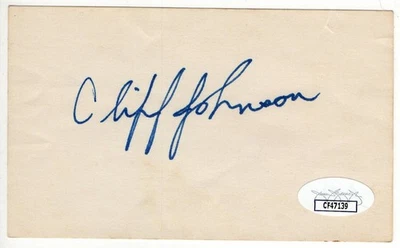 Cliff Johnson
CF47139